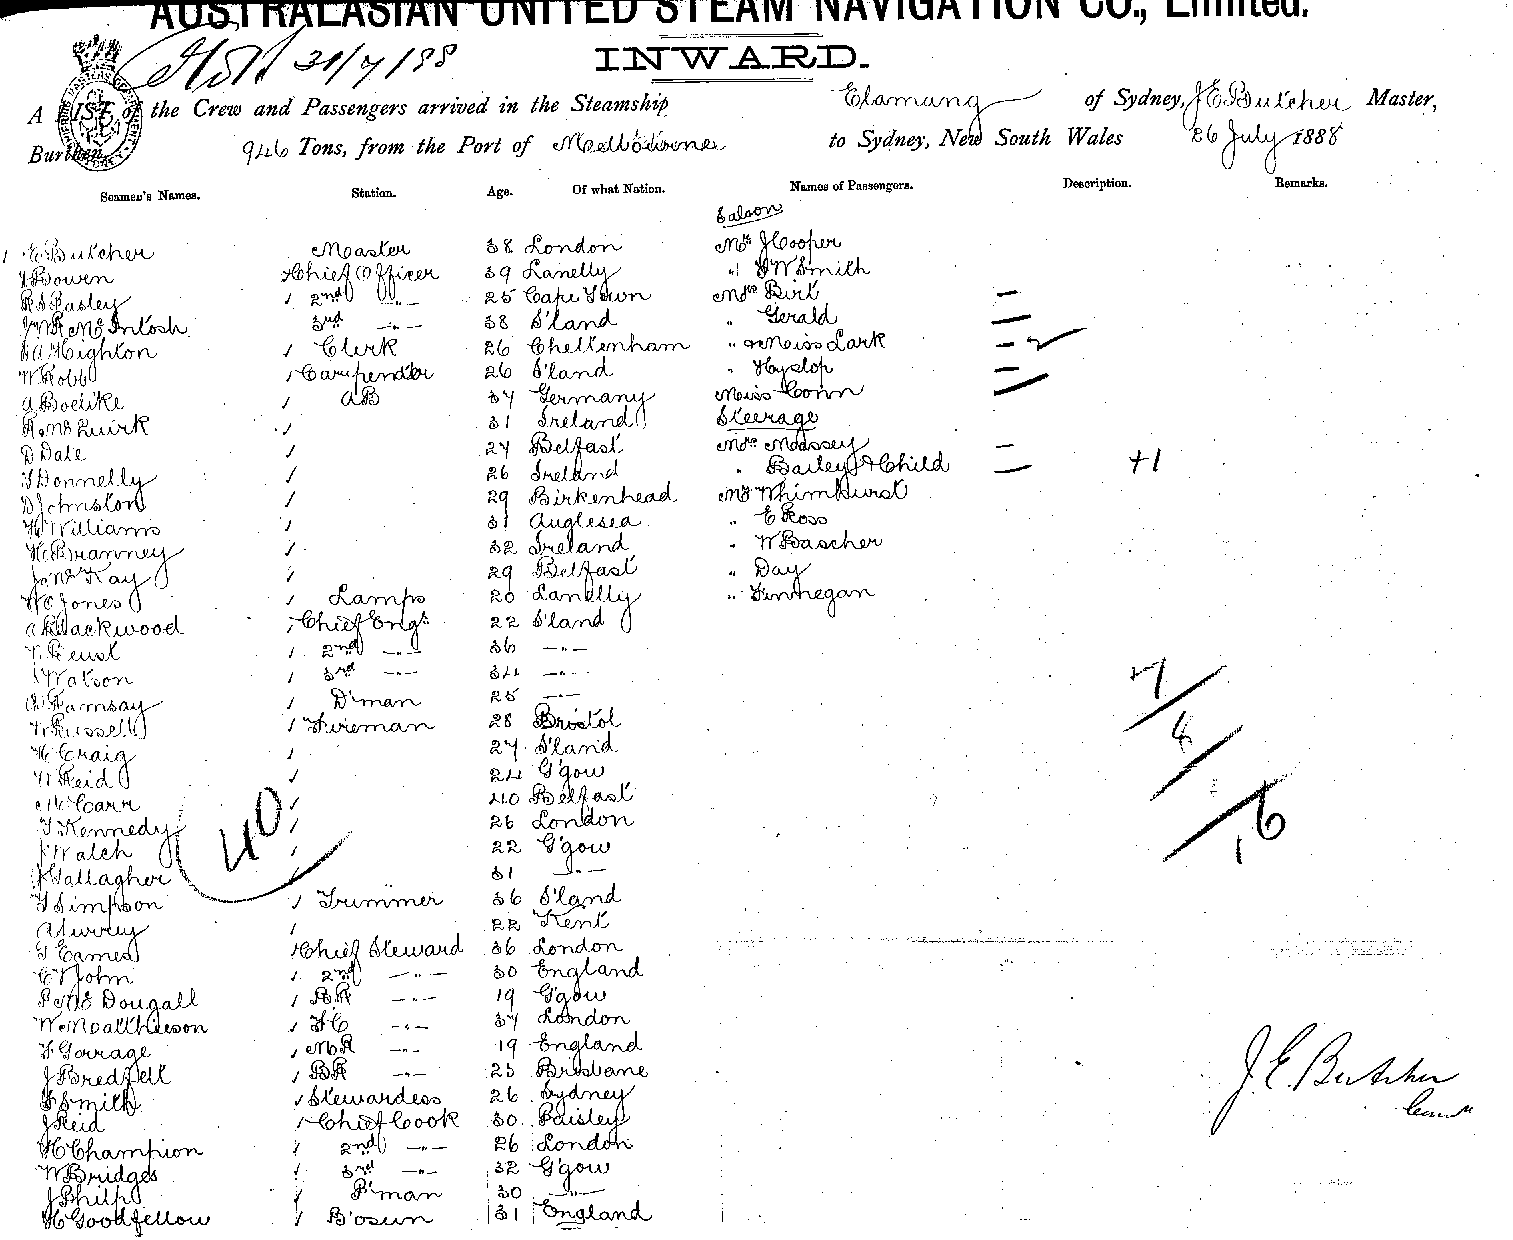 AUSTRALASIAN UNITED STEAM NAVIGATION CO., Limited.
31/7/88
INWARD.
A LIST of the Crew and Passengers arrived in the Steamship Elamang of Sydney, J E Butcher Master,
Burthen 946 Tons, from the Port of Melbourne to Sydney, New South Wales 26 July 1888
Seamen's Names. Station. Age. Of what Nation. Names of Passengers. Description. Remarks.
Saloon
E Butcher Master 38 London Mr J Cooper
Bowen Chief Officer 39 Lanelly " W Smith
R S Pasley 2nd -"- 25 Cape Town Mrs Birt
McIntosh 3rd -"- 38 S'land " Gerald
Highton Clerk 26 Cheltenham " & Miss Lark
W Robb Carpenter 26 S'land " Hyslop
A Boetike AB 37 Germany Miss Conn
R McQuirk 31 Ireland Steerage
D Dale 27 Belfast Mrs Massey
Donnelly 26 Ireland " Bailey & Child +1
D Johnston 29 Birkenhead Mr Whimhurst
H Williams 31 Anglesea " E Ross
H Branney 32 Ireland " W Bascher
J McKay 29 Belfast " Day
W C Jones Lamps 20 Lanelly " Finnegan
A Blackwood Chief Engr 22 S'land
Beust 2nd -"- 36 -"-
Watson 3rd -"- 34 -"-
Ramsay D'man 25 -"-
Russell Fireman 28 Bristol
H Craig 27 S'land
W Reid 24 G'gow
McCarr 40 Belfast
T Kennedy 26 London
J Walch 22 G'gow
J Gallagher 31 -"-
T Simpson Trimmer 36 S'land
22 Kent
T Eames Chief Steward 36 London
John 2nd -"- 30 England
P McDougall BR -"- 19 G'gow
W Matthieson FC -"- 37 London
F Gorrage MR -"- 19 England
J Bredfell BR -"- 25 Brisbane
Smith Stewardess 26 Sydney
J Reid Chief Cook 30 Paisley
H Champion 2nd -"- 26 London
W Bridges 3rd -"- 32 G'gow
J Philps P'man 30 -"-
H Goodfellow B'osun 31 England
40
7
8
1
16
J. E. Butcher